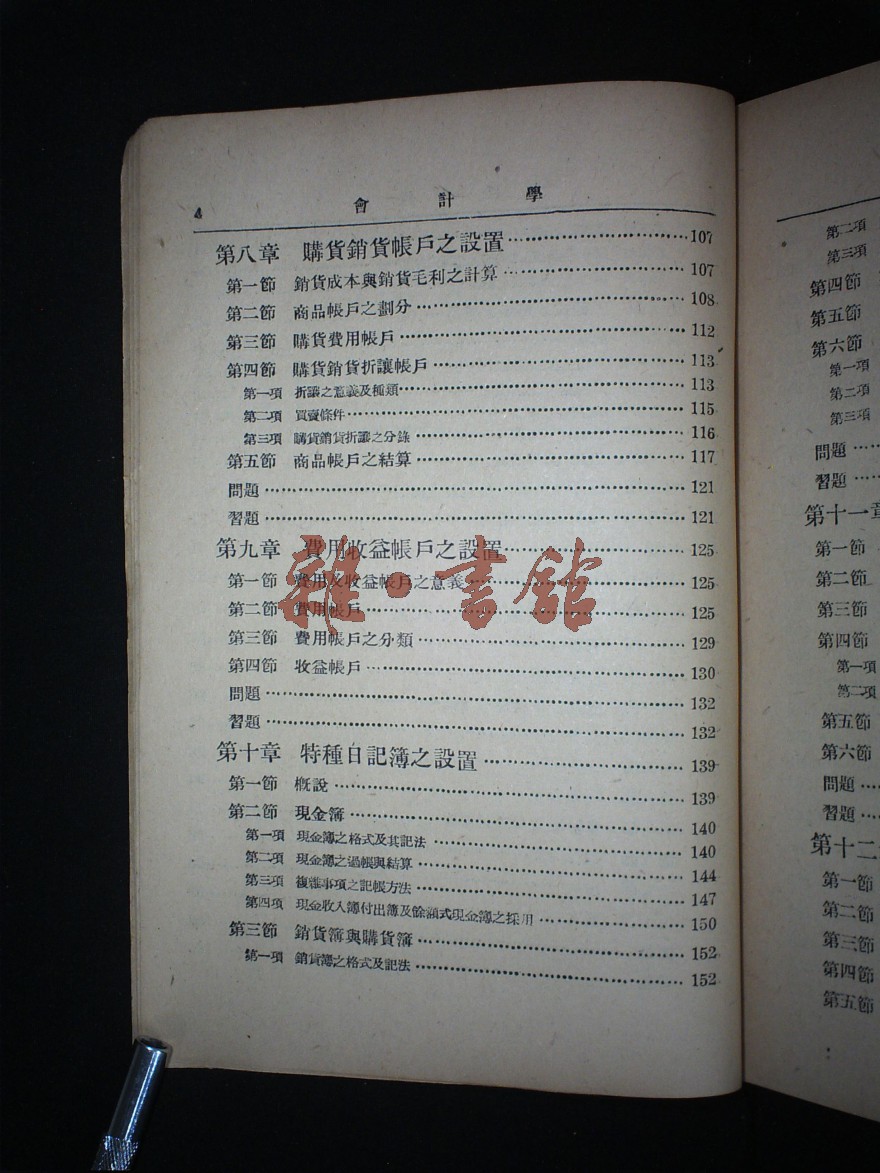 4 會計學
第八章 購貨銷貨帳戶之設置 107
第一節 銷貨成本與銷貨毛利之計算 107
第二節 商品帳戶之劃分 108
第三節 購貨費用帳戶 112
第四節 購貨銷貨折讓帳戶 113
第一項 折讓之意義及種類 113
第二項 買賣條件 115
第三項 購貨銷貨折讓之分錄 116
第五節 商品帳戶之結算 117
問題 121
習題 121
第九章 費用收益帳戶之設置 125
第一節 費用及收益帳戶之意義 125
第二節 費用帳戶 125
第三節 費用帳戶之分類 129
第四節 收益帳戶 130
問題 132
習題 132
第十章 特種日記簿之設置 139
第一節 概說 139
第二節 現金簿 140
第一項 現金簿之格式及其記法 140
第二項 現金簿之過帳與結算 144
第三項 複雜事項之記帳方法 147
第四項 現金收入簿付出簿及餘額式現金簿之採用 150
第三節 銷貨簿與購貨簿 152
第一項 銷貨簿之格式及記法 152
雜·書館
第二項
第三項
第四節
第五節
第六節
第一項
第二項
第三項
問題
習題
第十一章
第一節
第二節
第三節
第四節
第一項
第二項
第五節
第六節
問題
習題
第十二
第一節
第二節
第三節
第四節
第五節